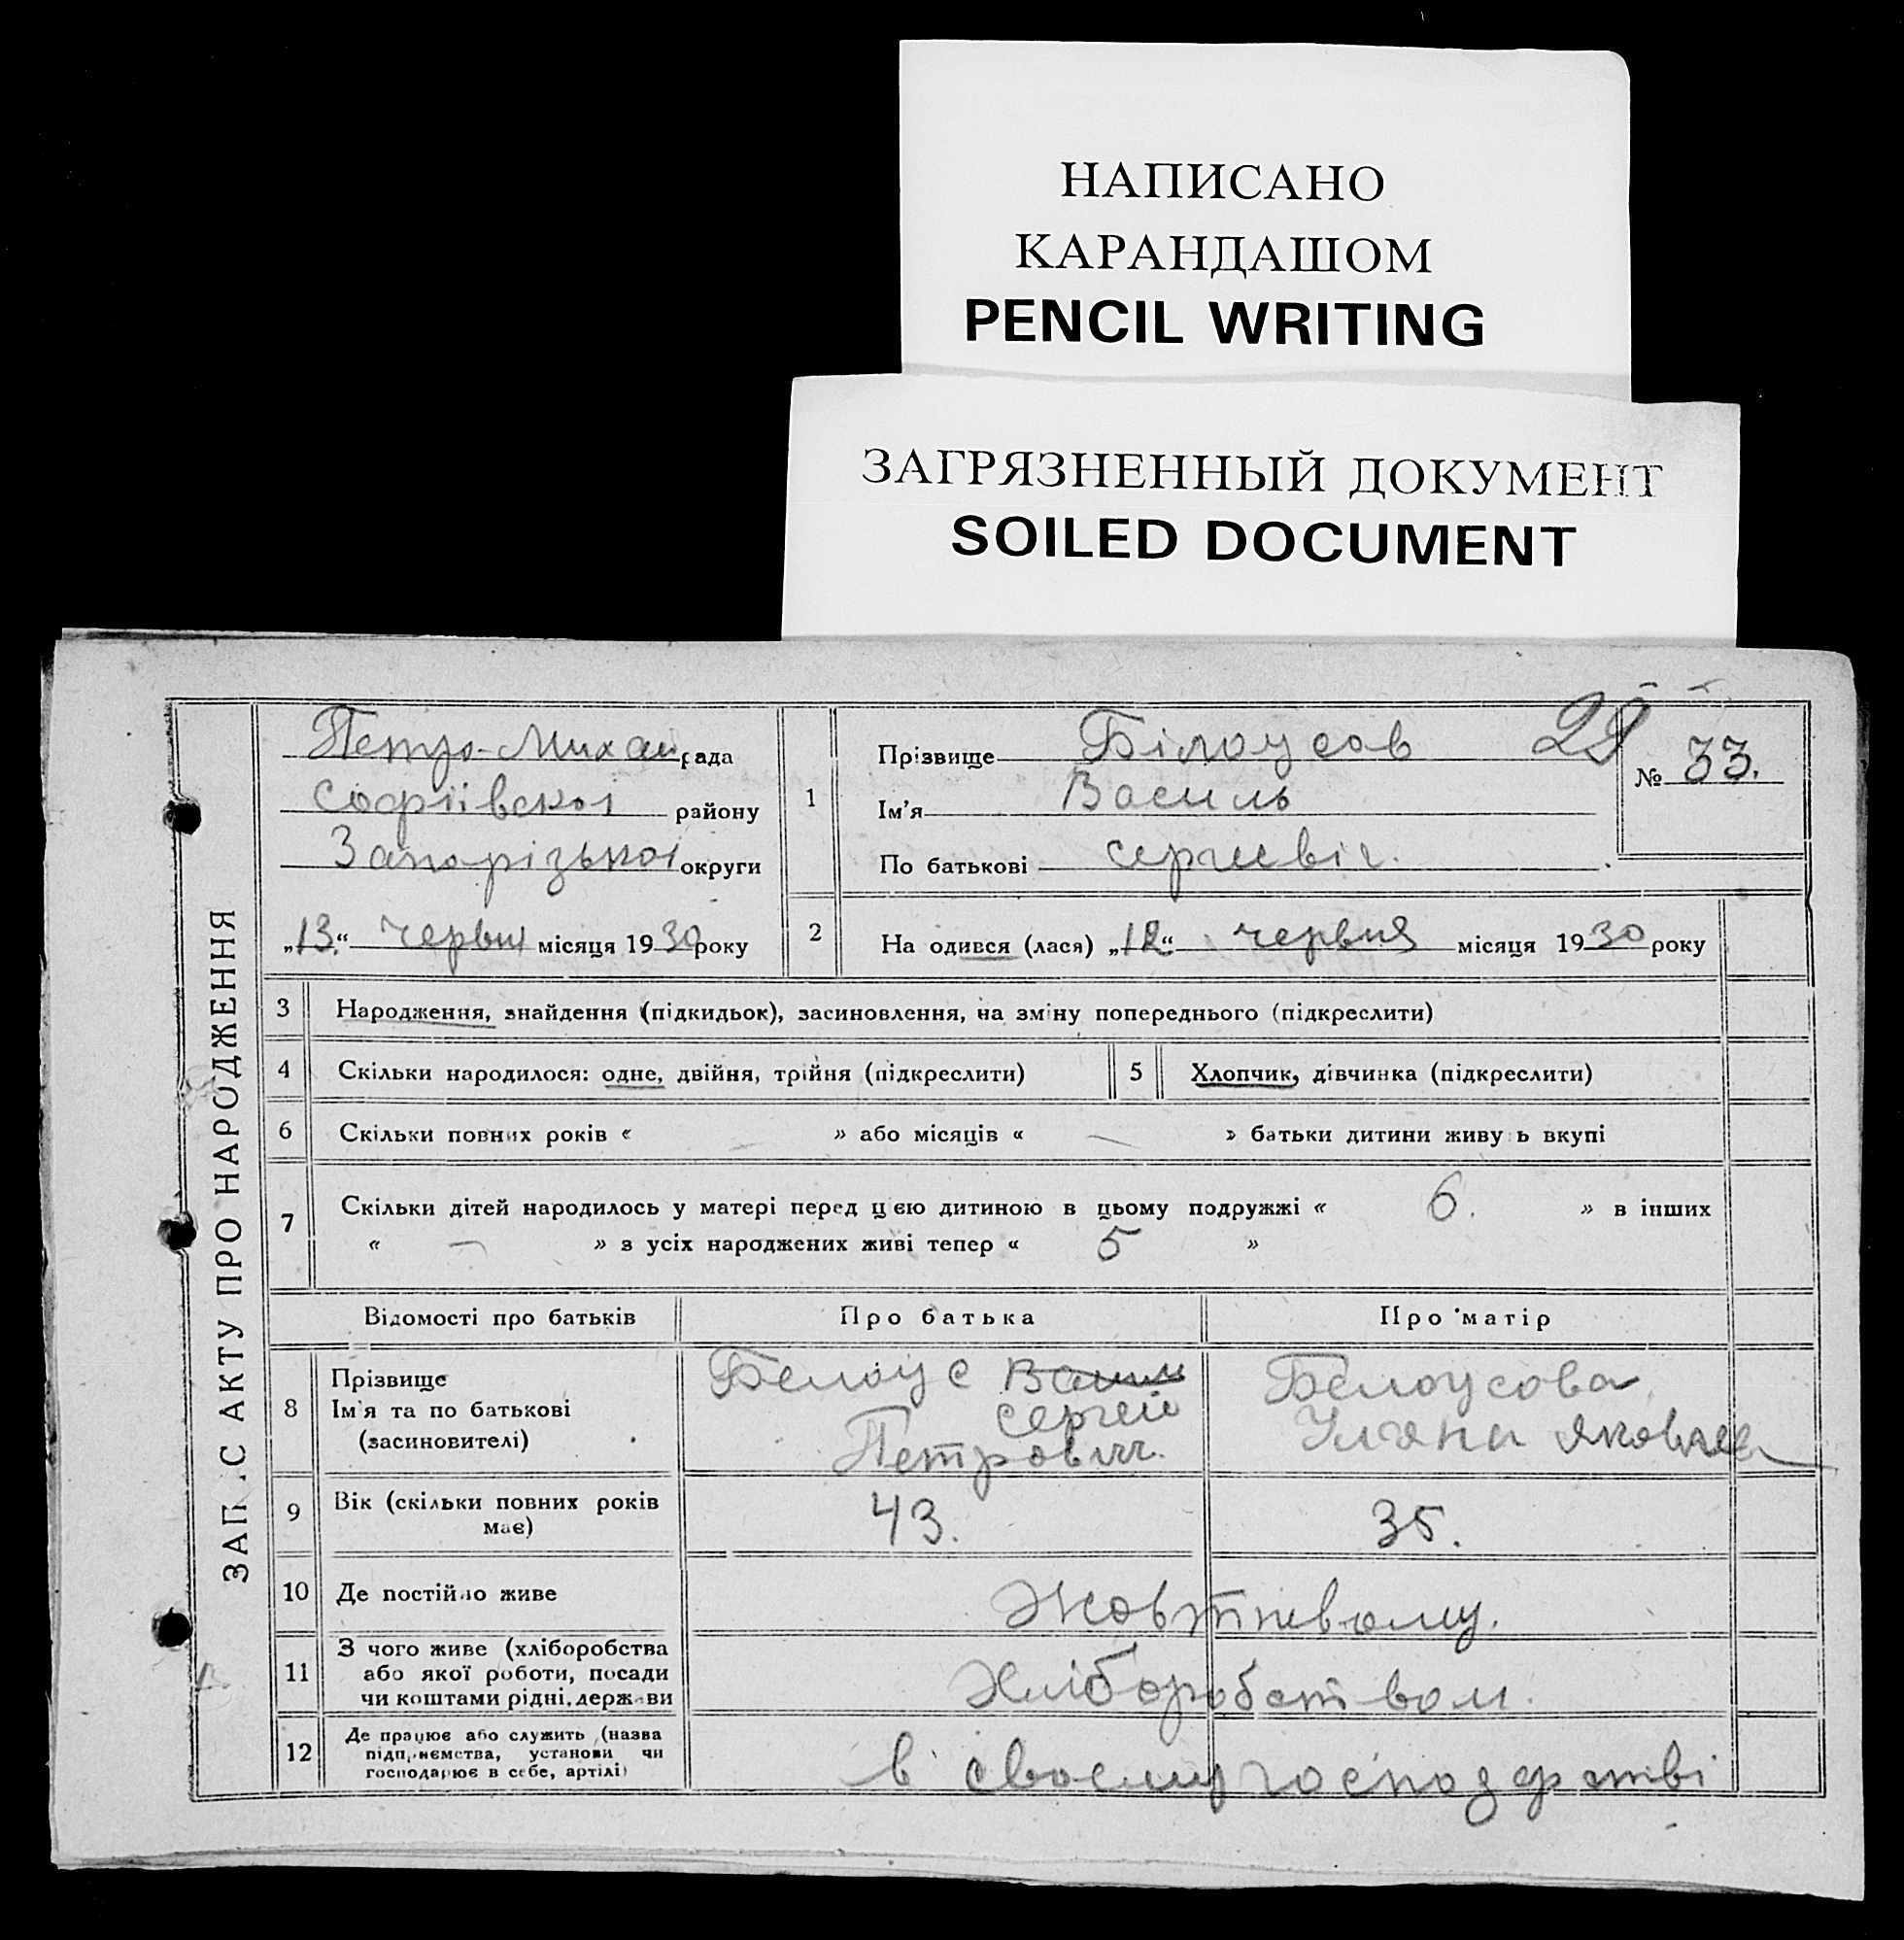 НАПИСАНО
КАРАНДАШОМ
PENCIL WRITING
ЗАГРЯЗНЕННЫЙ ДОКУМЕНТ
SOILED DOCUMENT
ЗАП.С АКТУ ПРО НАРОДЖЕННЯ
Петро-Михай рада
Софіївскоі району
Запорізькоі округи
„13“ червня місяця 1930 року
1 Прізвище Білоусов 28
№ 33.
Ім’я Василь
По батькові Сергиевіч.
2 На одився (лася) „12“ червня місяця 1930 року
3 Народження, знайдення (підкидьок), засиновлення, на зміну попереднього (підкреслити)
4 Скільки народилося: одне, двійня, трійня (підкреслити) 5 Хлопчик, дівчинка (підкреслити)
6 Скільки повних років « — » або місяців « — » батьки дитини живу ь вкупі
7 Скільки дітей народилось у матері перед цією дитиною в цьому подружжі « 6. » в інших
« — » з усіх народжених живі тепер « 5 »
Відомості про батьків Про батька Про матір
8 Прізвище
Ім’я та по батькові
(засиновителі)
Белоус
Сергей
Петрович.
Белоусова
Уляна Яковлев
9 Вік (скільки повних років
має)
43. 35.
10 Де постійно живе Жовтневому.
11 З чого живе (хліборобства
або якої роботи, посади
чи коштами рідні, держави
Хліборобством.
12 Де працює або служить (назва
підприємства, установи чи
господарює в себе, артілі)
в своєму господарстві